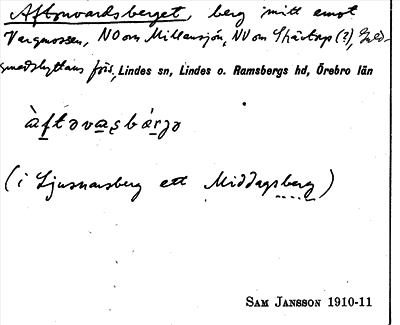 Aftonvardsberget, berg mitt emot
Vargmossen, NO om Mellansjön, NV om Skärtorp (?), Guld-
smedshyttans förs., Lindes sn, Lindes o. Ramsbergs hd, Örebro län
(i Ljusnarsberg ett Middagsberg)
SAM JANSSON 1910-11